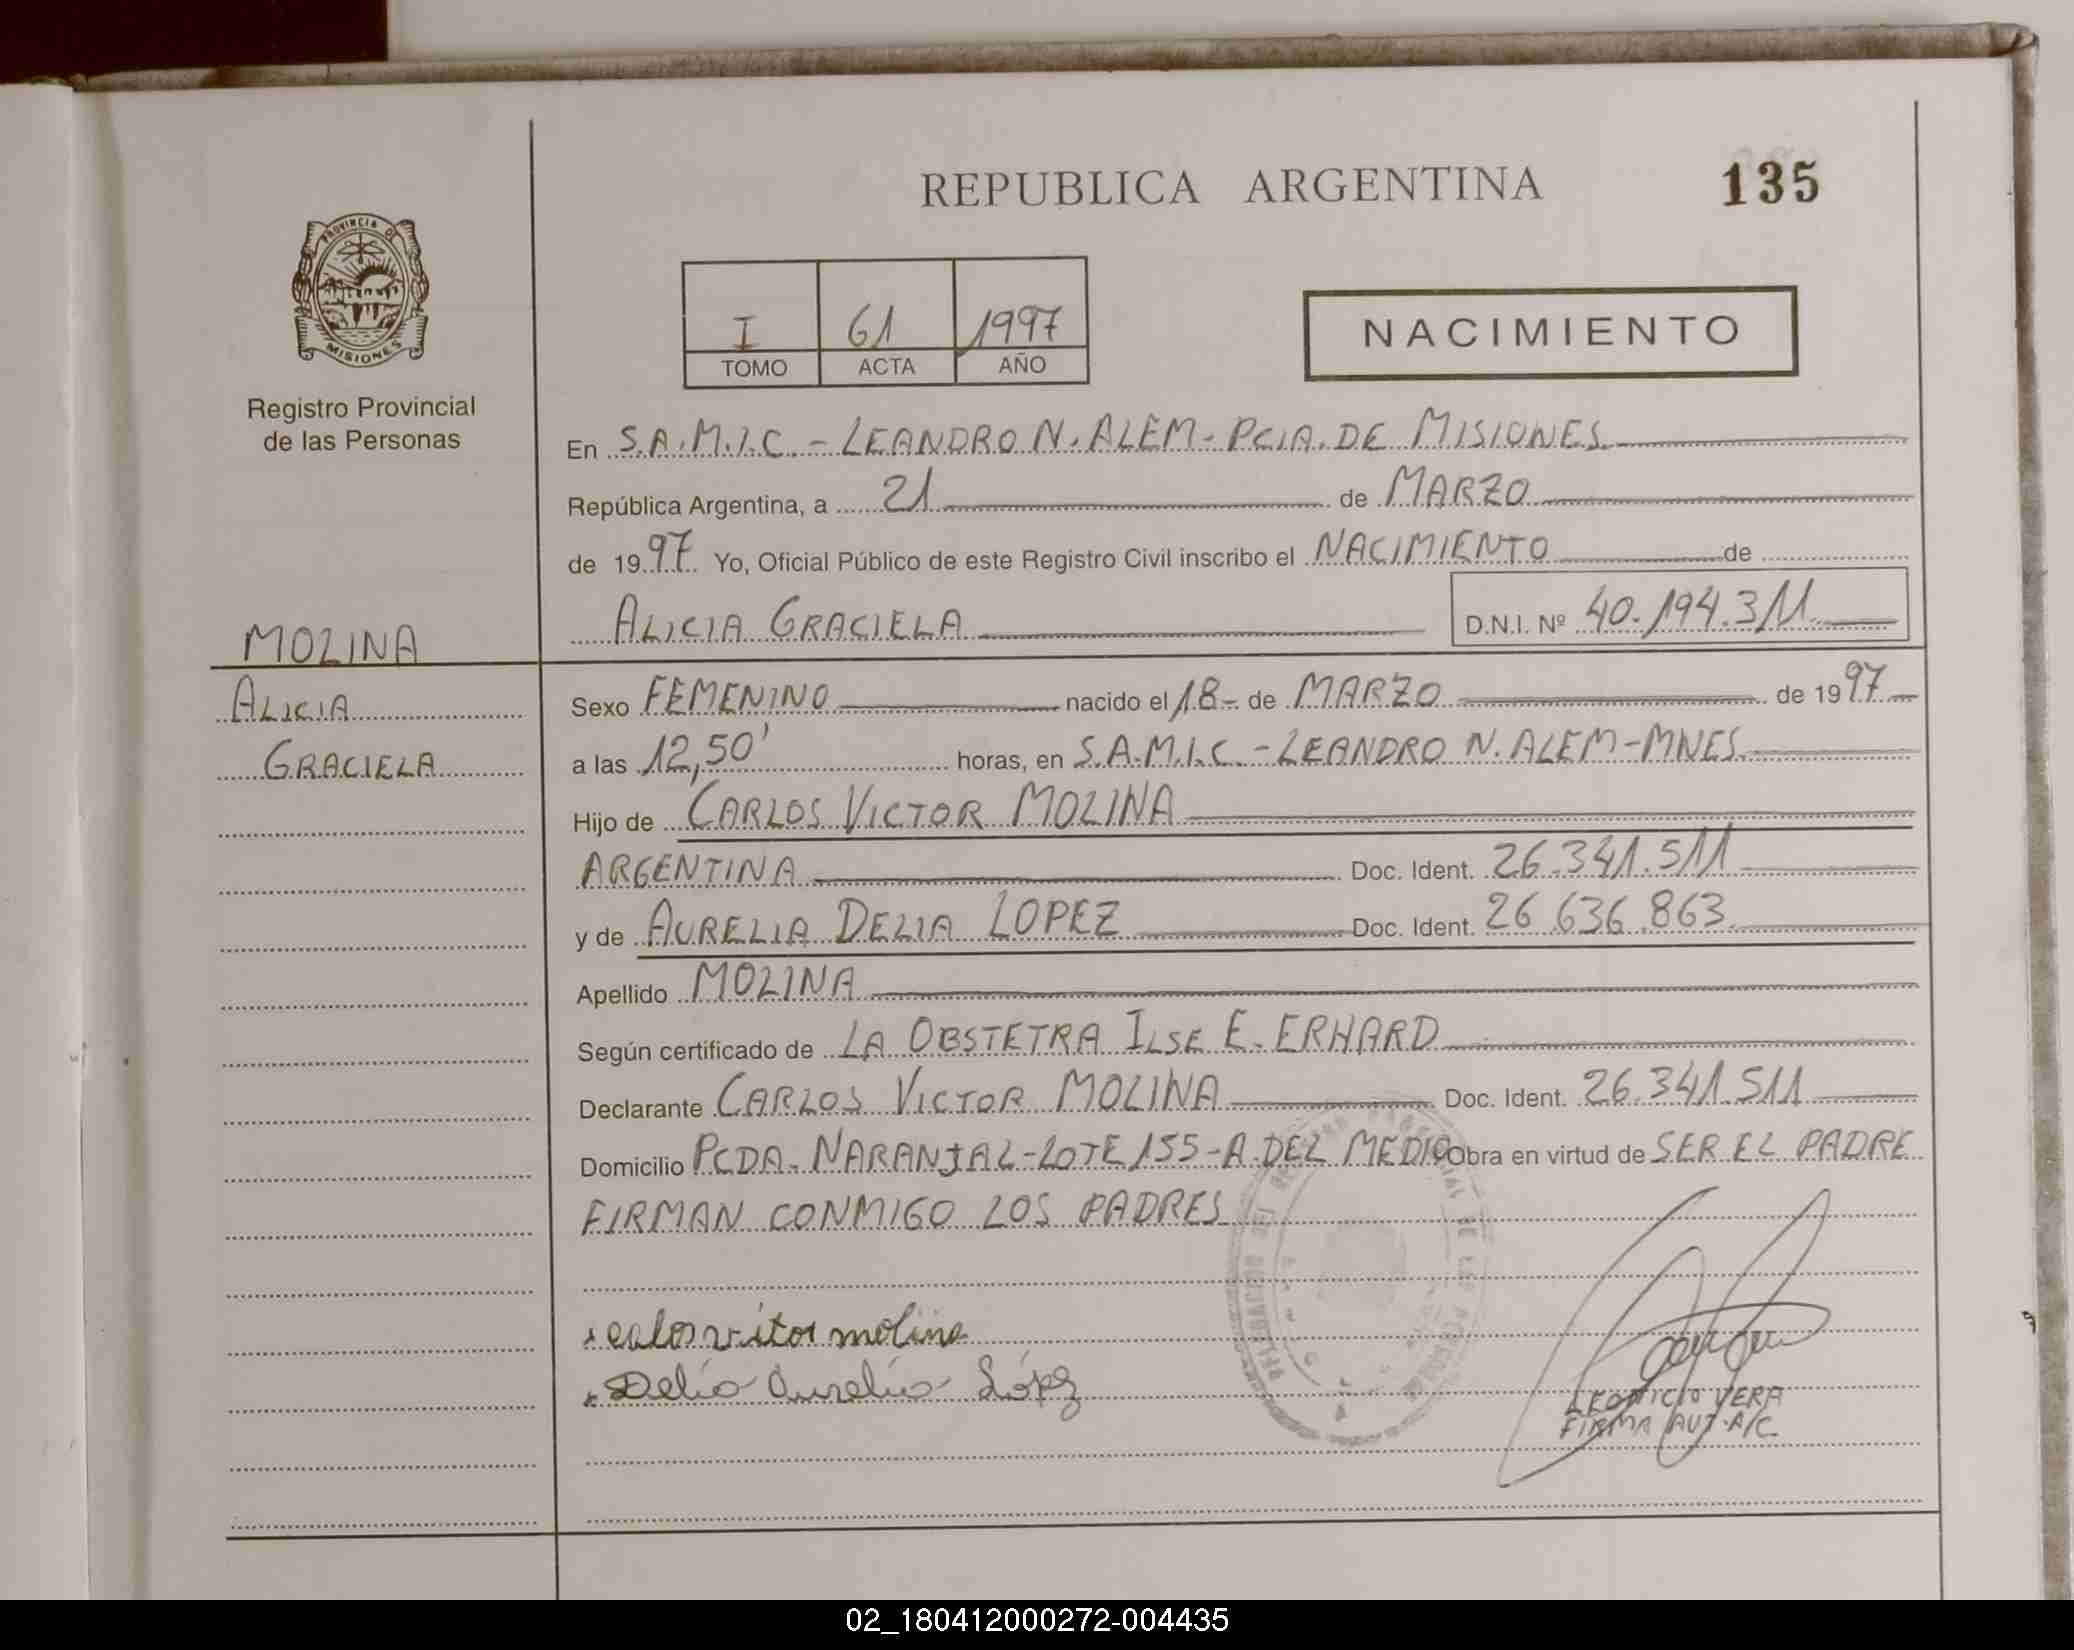 REPUBLICA ARGENTINA
135
PROVINCIA DE
MISIONES
Registro Provincial
de las Personas
I 61 1997
TOMO ACTA AÑO
NACIMIENTO
En S.A.M.I.C. - LEANDRO N. ALEM - PCIA. DE MISIONES
República Argentina, a 21 de MARZO
de 1997 Yo, Oficial Público de este Registro Civil inscribo el NACIMIENTO de
ALICIA GRACIELA D.N.I. Nº 40.194.311
MOLINA
ALICIA
GRACIELA
Sexo FEMENINO nacido el 18 - de MARZO de 1997
a las 12,50' horas, en S.A.M.I.C. - LEANDRO N. ALEM - MNES.
Hijo de CARLOS VICTOR MOLINA
ARGENTINA Doc. Ident. 26.341.511
y de AURELIA DELIA LOPEZ Doc. Ident. 26.636.863
Apellido MOLINA
Según certificado de LA OBSTETRA ILSE E. ERHARD
Declarante CARLOS VICTOR MOLINA Doc. Ident. 26.341.511
Domicilio PCDA. NARANJAL - LOTE 155 - A. DEL MEDIO Obra en virtud de SER EL PADRE
FIRMAN CONMIGO LOS PADRES
x calos vitor molina
x Delia Aurelia López
LEONICIO VERA
FIRMA AUT. A/C
02_180412000272-004435